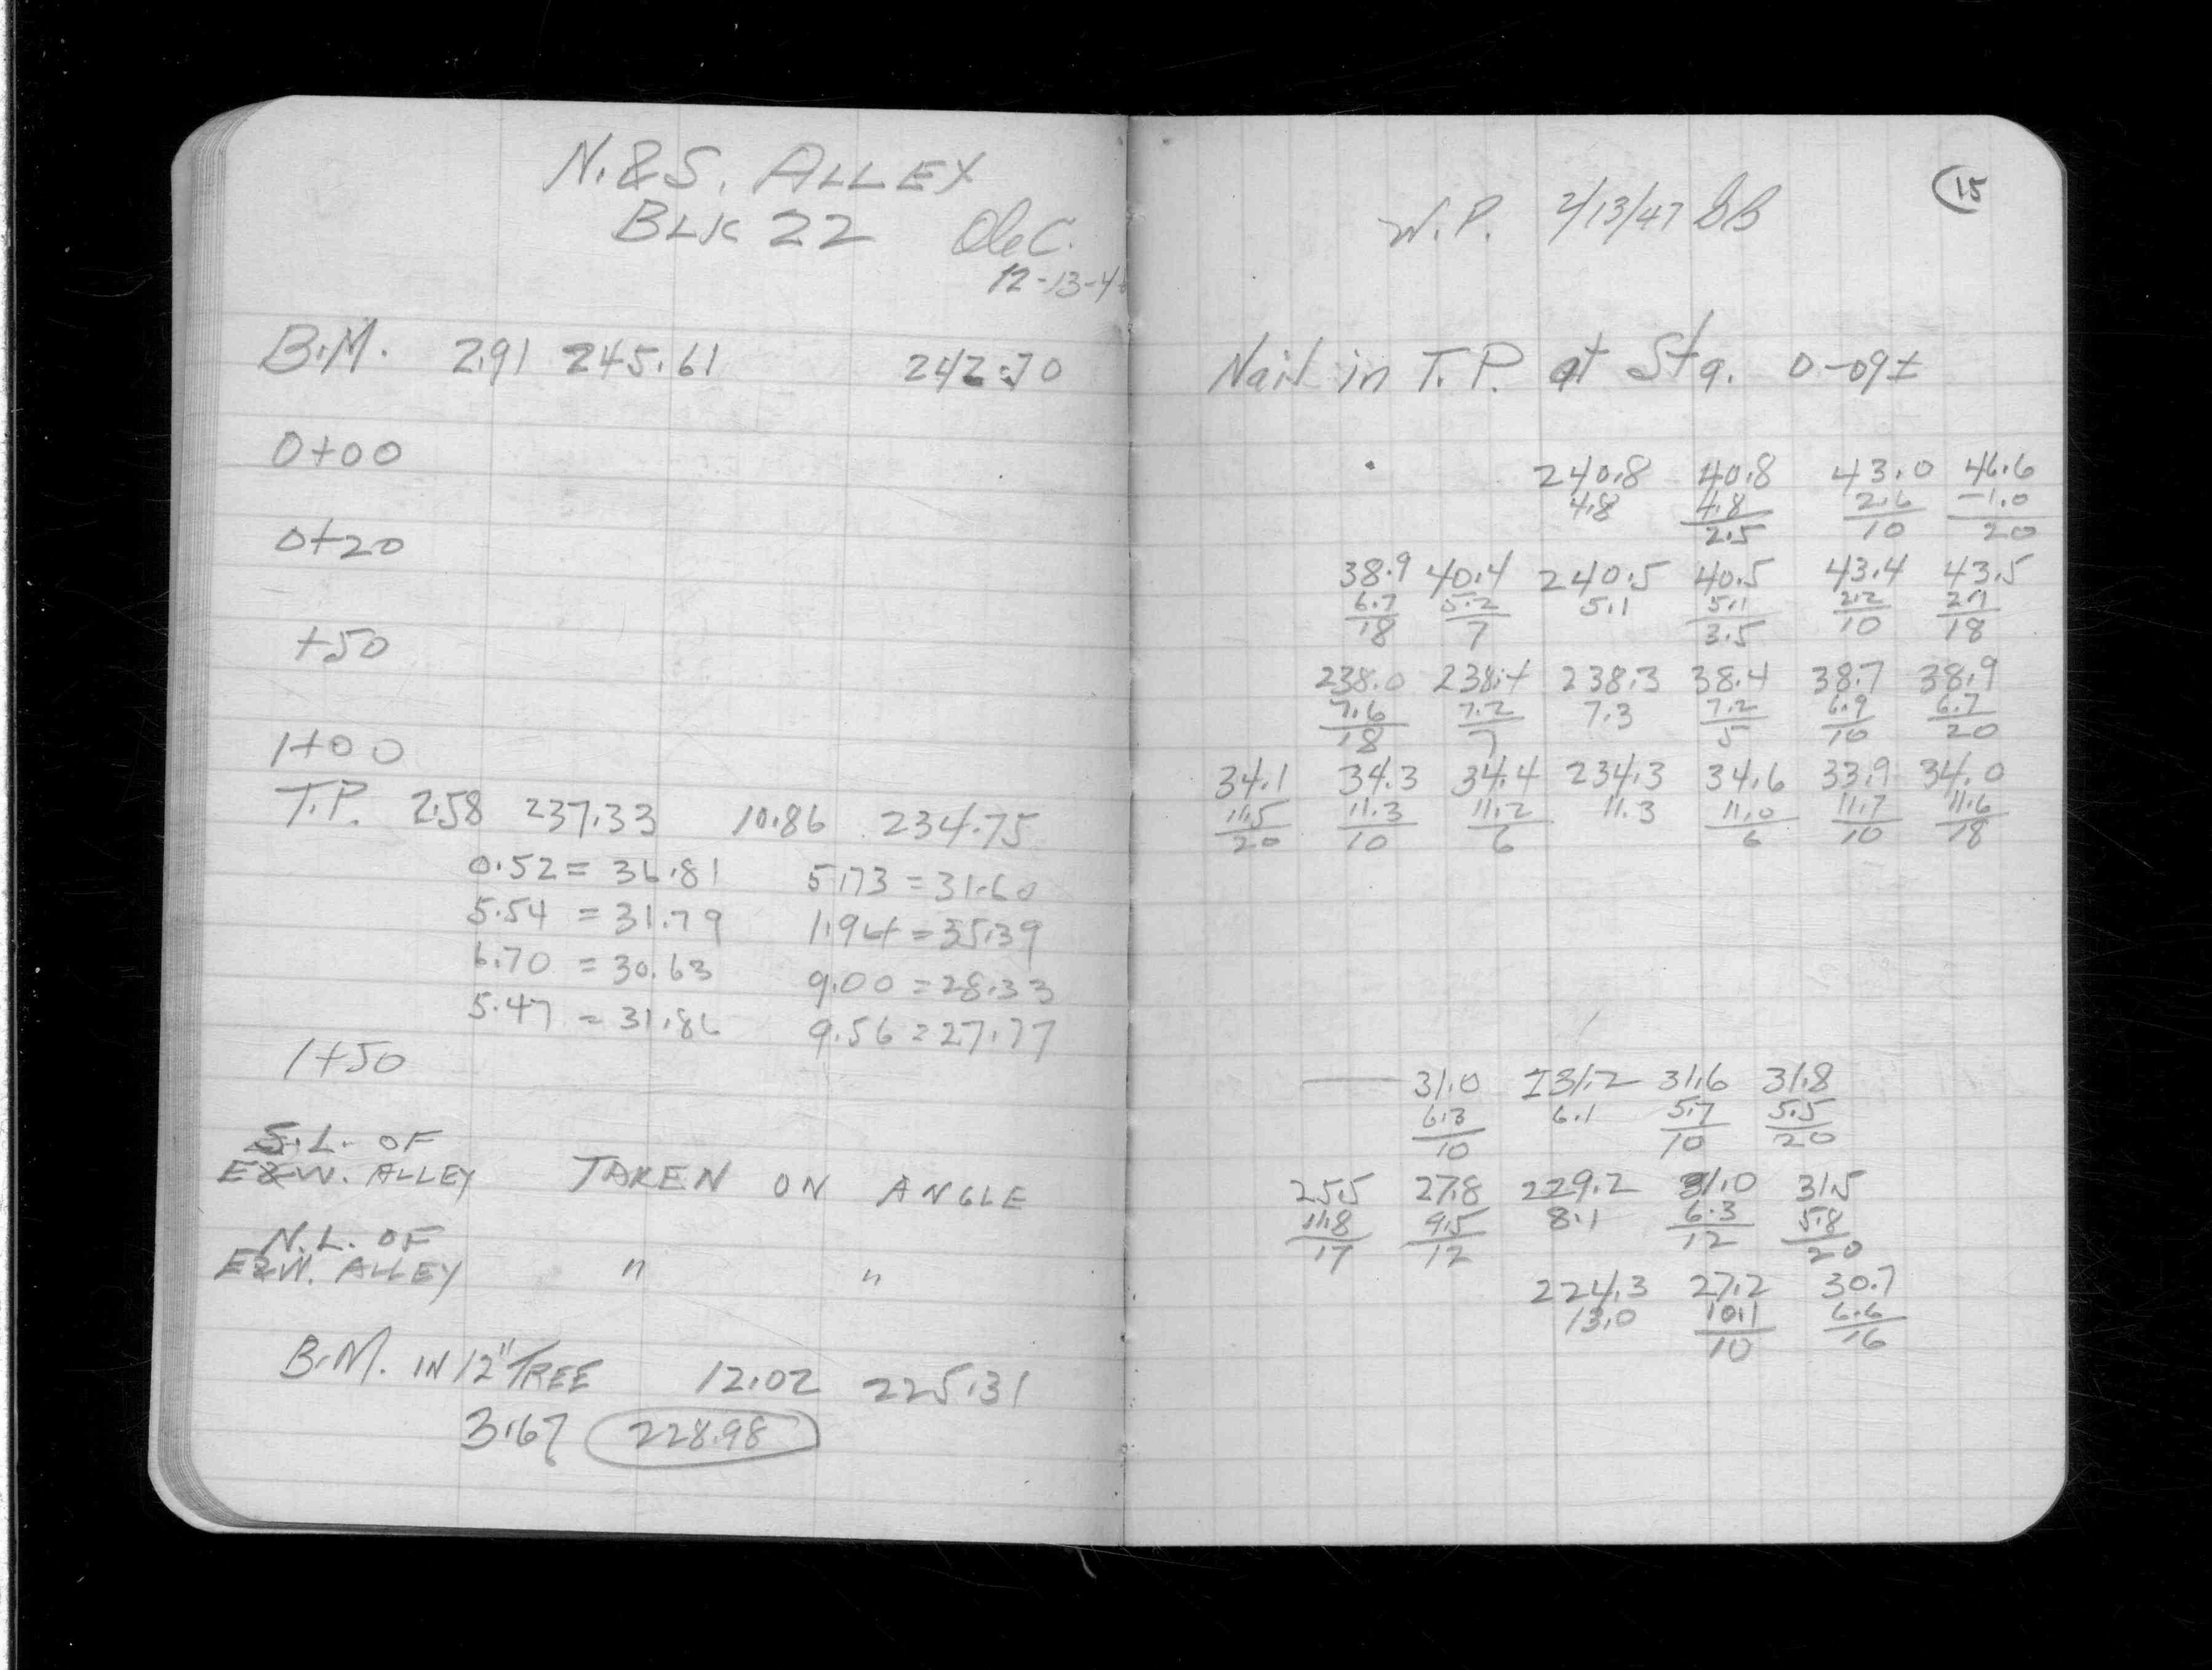 N.&S. ALLEY
BLK 22
12-13-4
B.M. 2.91 245.61 242.70
0+00
0+20
+50
1+00
T.P. 2.58 237.33 10.86 234.75
0.52 = 36.81 5.73 = 31.60
5.54 = 31.79 1.94 = 35.39
6.70 = 30.63 9.00 = 28.33
5.47 = 31.86 9.56 = 27.77
1+50
S.L. OF
E&W. ALLEY TAKEN ON ANGLE
N.L. OF
E&W. ALLEY " "
B.M. IN 12" TREE 12.02 225.31
3.67 228.98
15
W.P. 2/13/47 BB
Nail in T.P. at Sta. 0-09±
240.8 40.8 43.0 46.6
4.8 4.8 2.6 -1.0
2.5 10 20
38.9 40.4 240.5 40.5 43.4 43.5
6.7 5.2 5.1 5.1 2.2 2.1
18 7 3.5 10 18
238.0 238.4 238.3 38.4 38.7 38.9
7.6 7.2 7.3 7.2 6.9 6.7
18 7 5 10 20
34.1 34.3 34.4 234.3 34.6 33.9 34.0
11.5 11.3 11.2 11.3 11.0 11.7 11.6
20 10 6 6 10 18
31.0 231.2 31.6 31.8
6.3 6.1 5.7 5.5
10 10 20
25.5 27.8 229.2 31.0 31.5
11.8 9.5 8.1 6.3 5.8
17 12 12 20
224.3 27.2 30.7
13.0 10.1 6.6
10 16